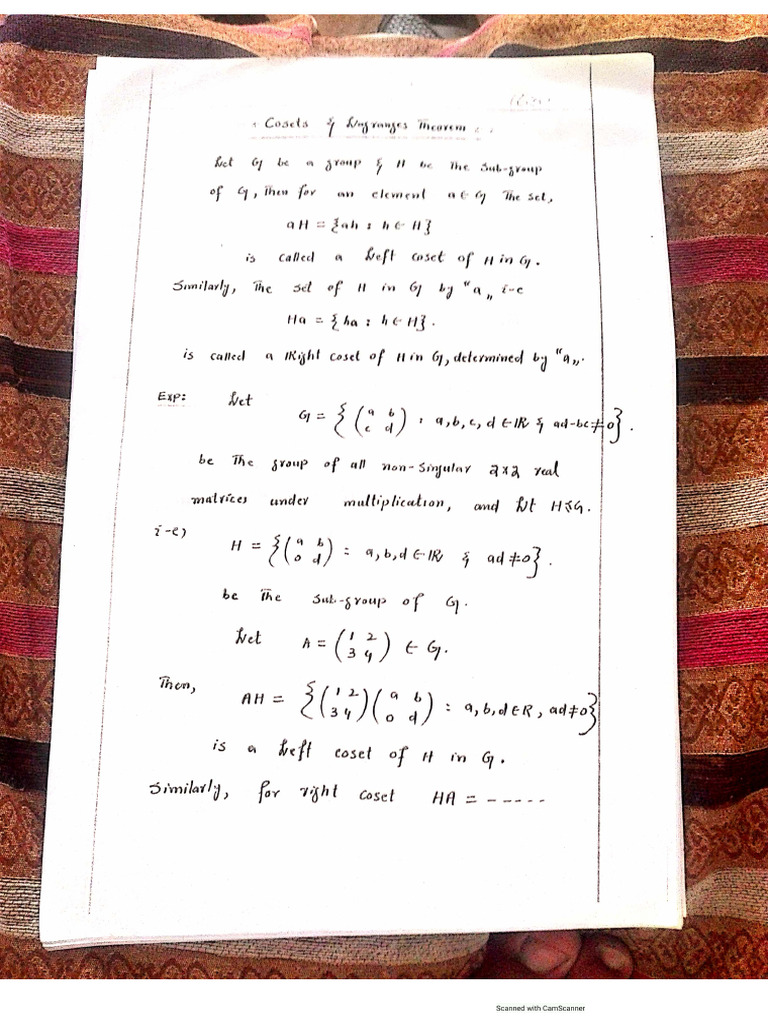 Cosets & Lagranges Theorem
Let G be a group & H be the sub-group
of G, Then for an element a ∈ G The set,
aH = {ah : h ∈ H}
is called a Left coset of H in G.
Similarly, The set of H in G by "a„ i-e
Ha = {ha : h ∈ H}.
is called a Right coset of H in G, determined by "a„.
Exp: Let
G = { ( a b ; c d ) : a,b,c,d ∈ IR & ad-bc≠0 }.
be The group of all non-singular 2x2 real
matrices under multiplication, and Let H≤G.
i-e)
H = { ( a b ; 0 d ) : a,b,d ∈ IR & ad≠0 }.
be The sub-group of G.
Let A = ( 1 2 ; 3 4 ) ∈ G.
Then,
AH = { ( 1 2 ; 3 4 ) ( a b ; 0 d ) : a,b,d ∈ R, ad≠0 }
is a Left coset of H in G.
Similarly, for right coset HA = -----
Scanned with CamScanner